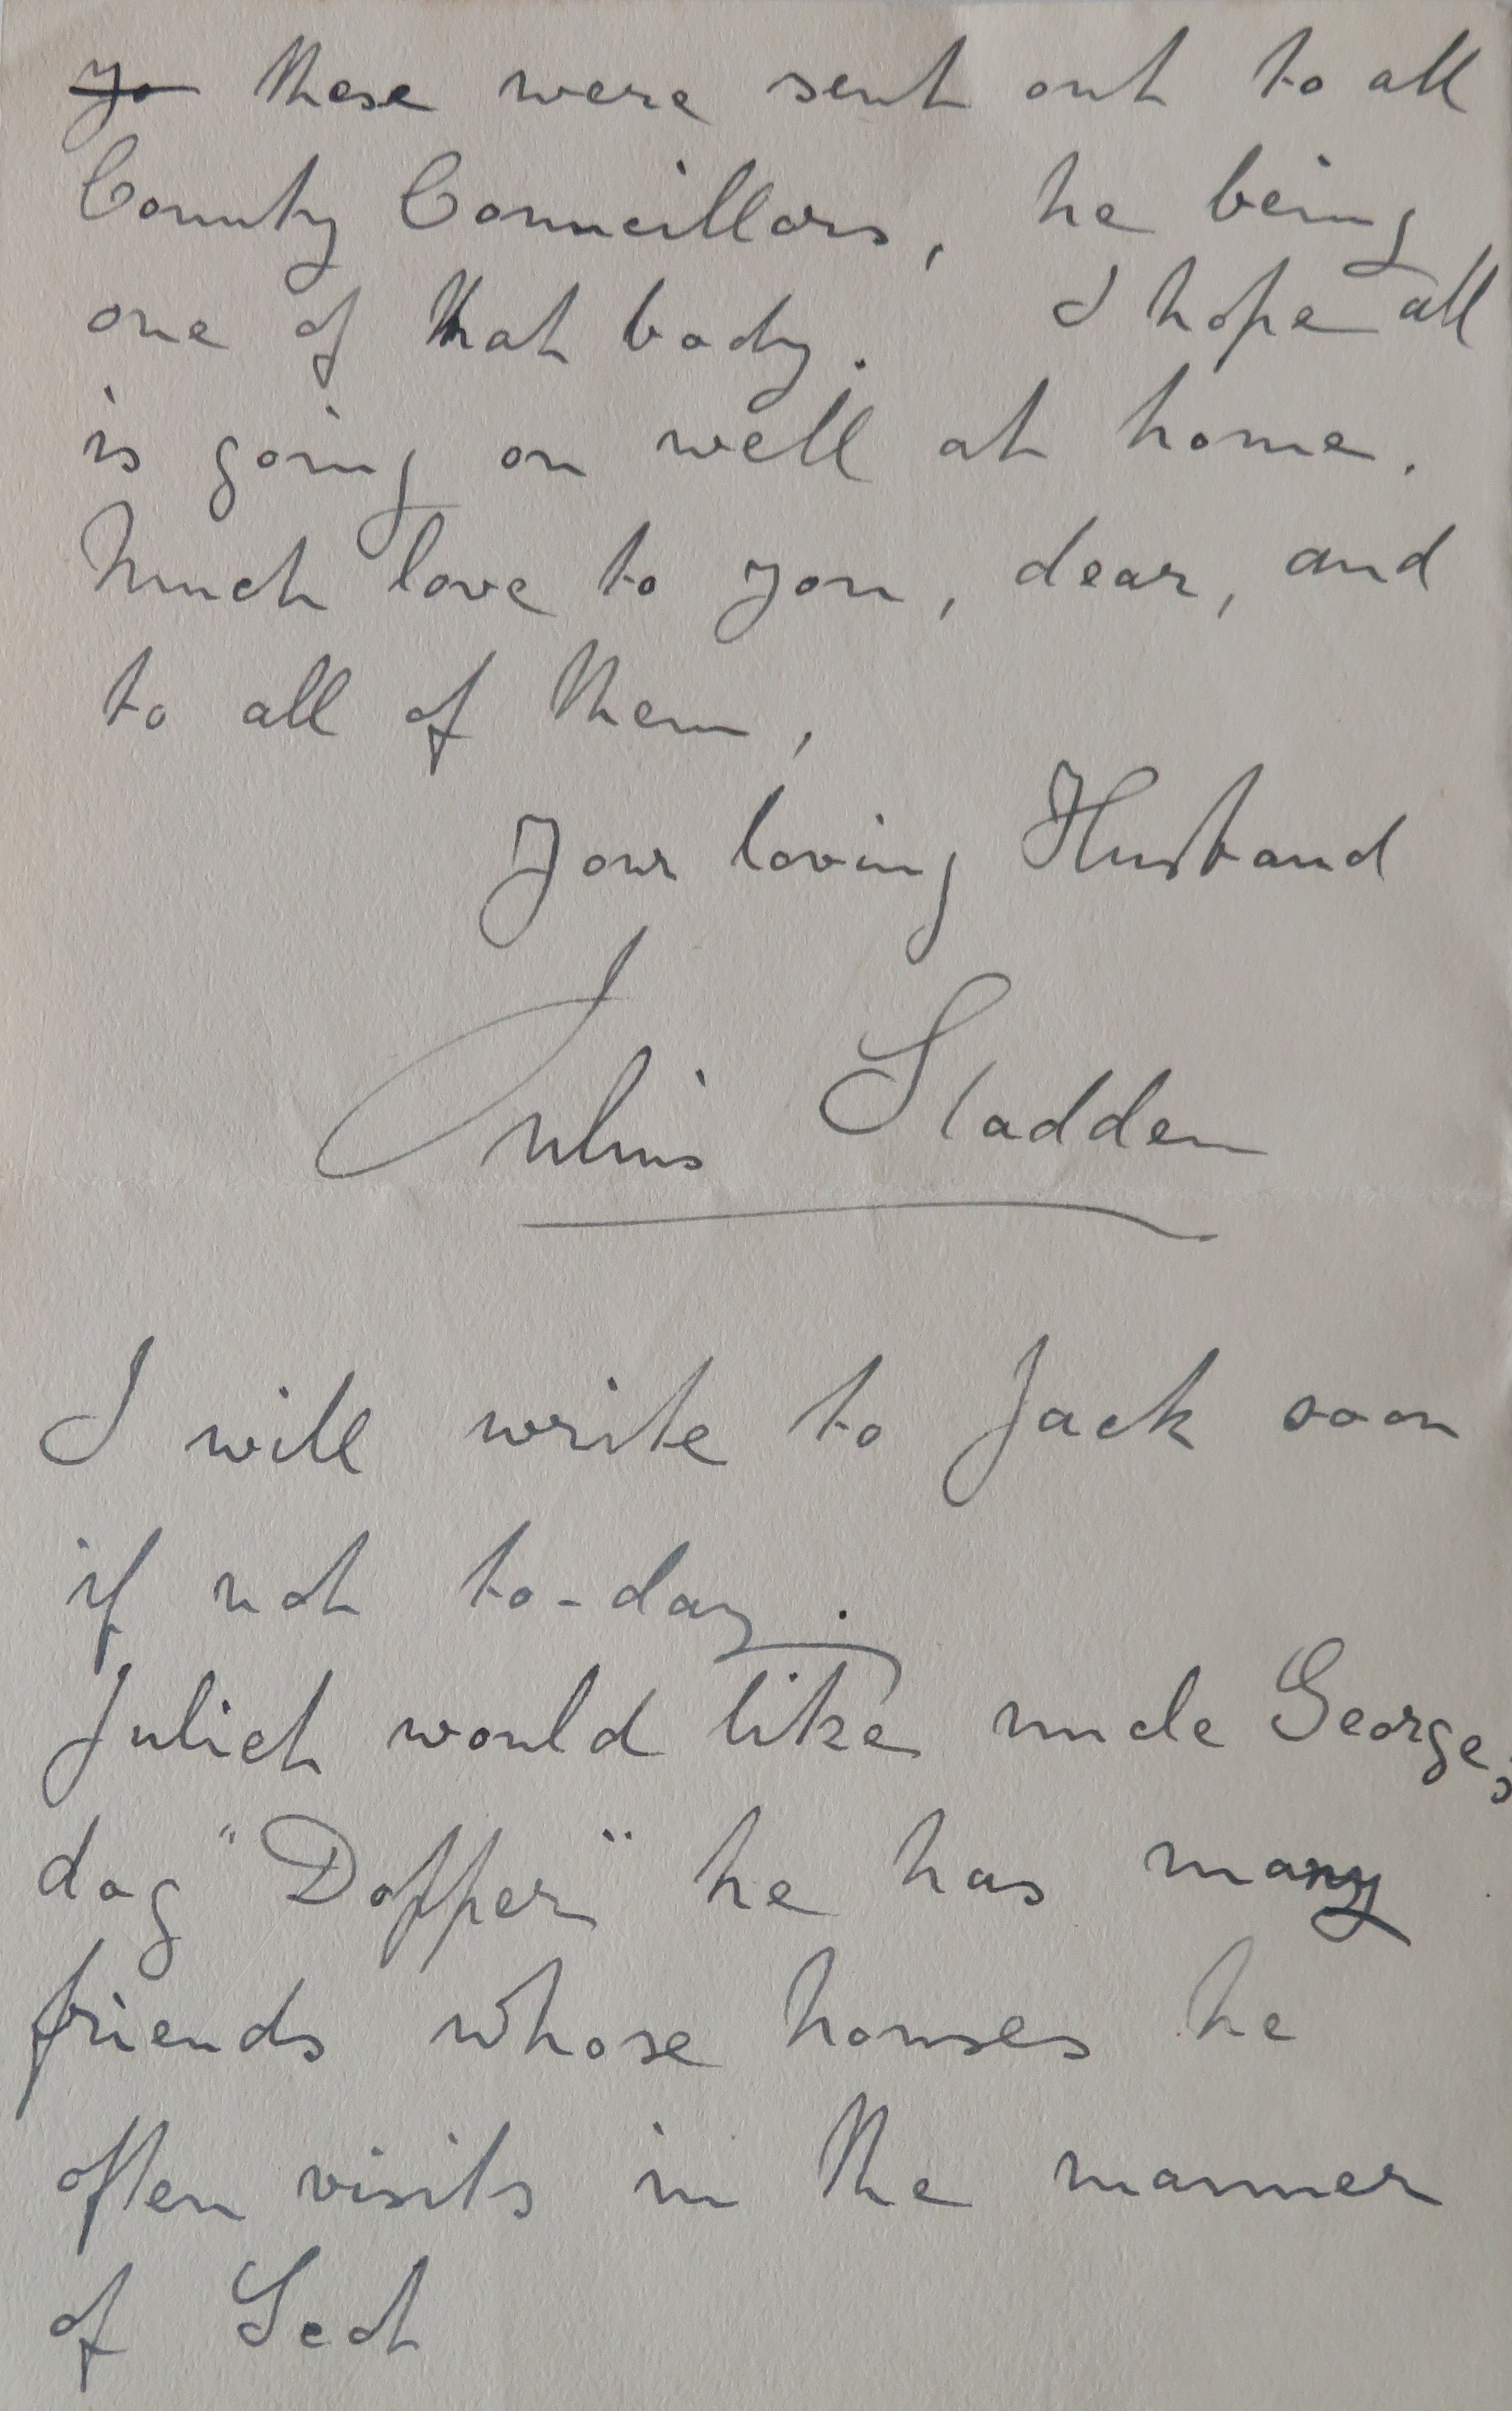 ~~yo~~ these were sent out to all
County Councillors, he being
one of that body. I hope all
is going on well at home.
Much love to you, dear, and
to all of them,
Your loving Husband
Julius Sladden
I will write to Jack soon
if not to-day.
Juliet would like uncle George,s
dog "Dopper" he has many
friends whose houses he
often visits in the manner
of